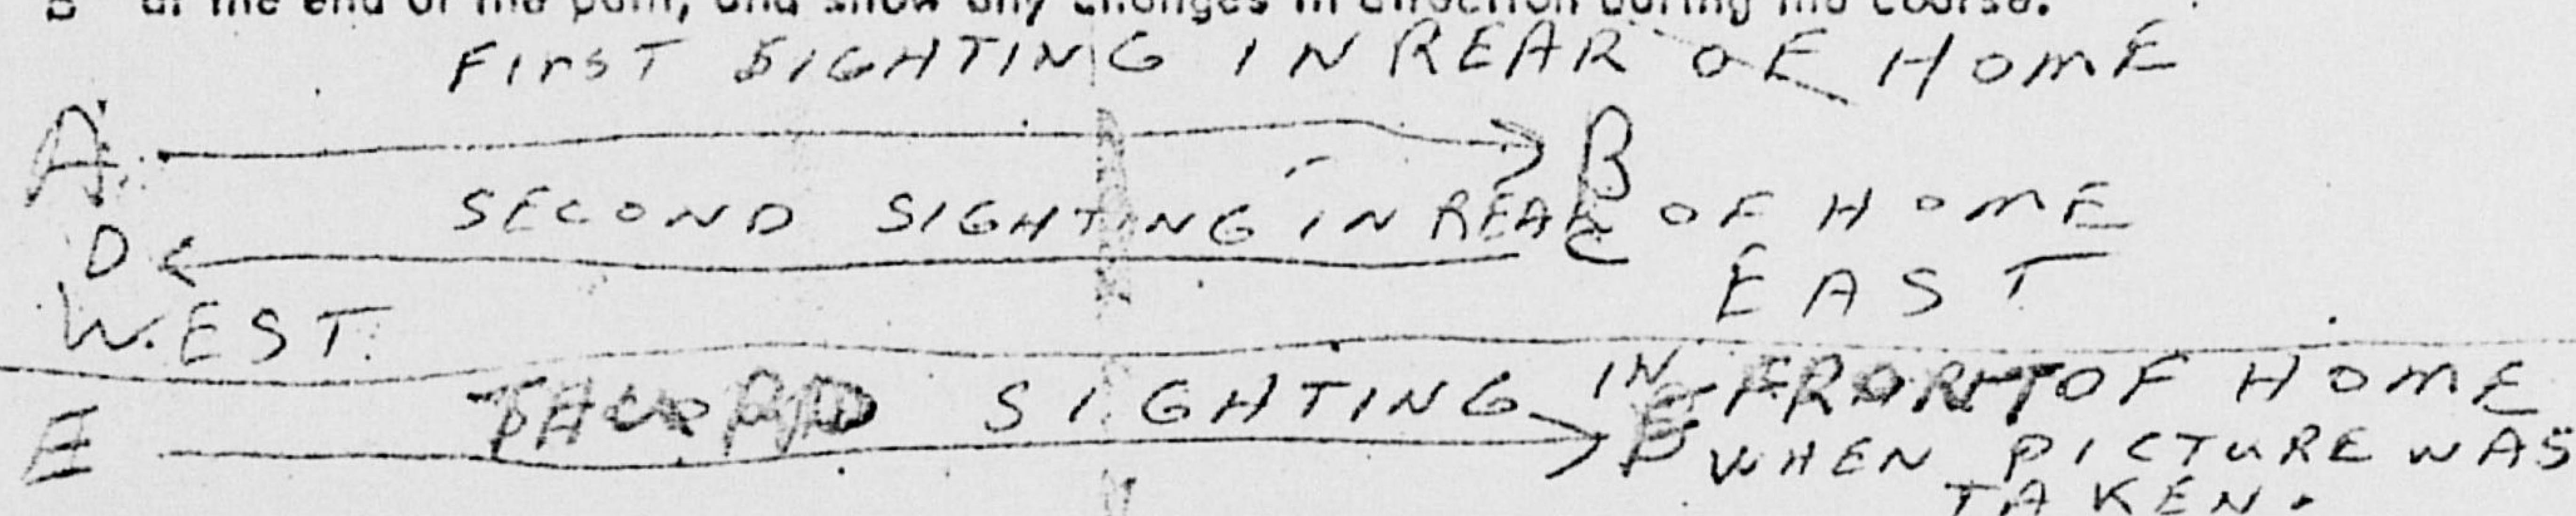 B at the end of the path, and show any changes in direction during the course.
FIrST SIGHTING IN REAR OF HOME
A B
SECOND SIGHTING IN REAR OF HOME
D C
EAST
WEST
THIRD SIGHTING IN FRONT OF HOME
E F WHEN PICTURE WAS
TAKEN.